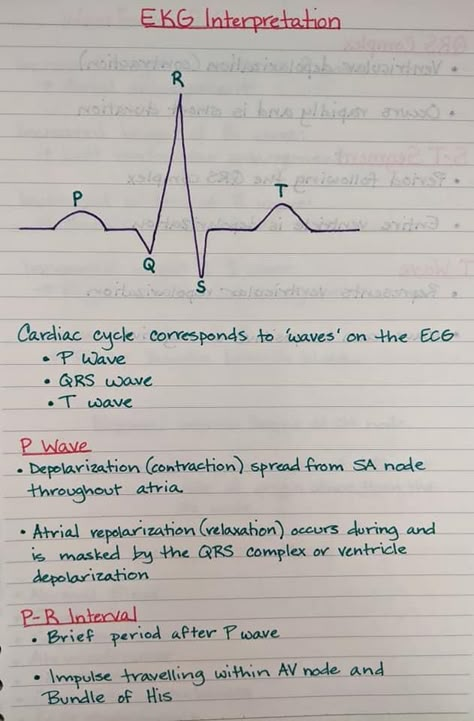 EKG Interpretation
R
P
T
Q
S
Cardiac cycle corresponds to 'waves' on the ECG
• P Wave
• QRS wave
• T wave
P Wave
• Depolarization (contraction) spread from SA node
throughout atria
• Atrial repolarization (relaxation) occurs during and
is masked by the QRS complex or ventricle
depolarization
P-R Interval
• Brief period after P wave
• Impulse travelling within AV node and
Bundle of His